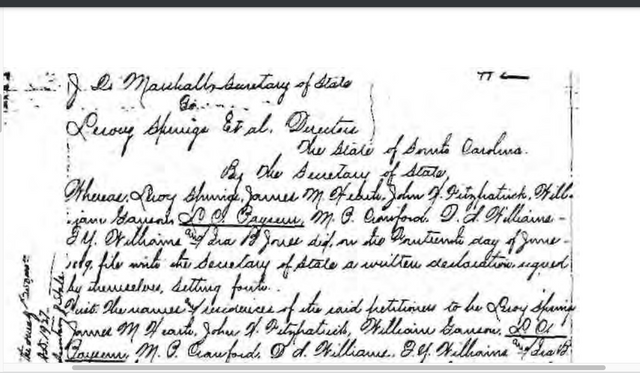 J. D. Marshall, Secretary of State
To
Leroy Springs Et al. Directors
The State of South Carolina.
By The Secretary of State,
Whereas, Leroy Springs, James M Heath, John H. Fitzpatrick, Will-
iam Ganson, L. C. Payseur, M. P. Crawford, D. d. Williams-
T. Y. Williams and Ira B Jones did, on the fourteenth day of June-
file with the Secretary of State a written declaration signed
by themselves, setting forth.
First. The names and residences of the said petitioners to be Leroy Springs
James M Heath, John H. Fitzpatrick, William Ganson, L. C.
Payseur, M. P. Crawford, D. d. Williams, T. Y. Williams and Ira B